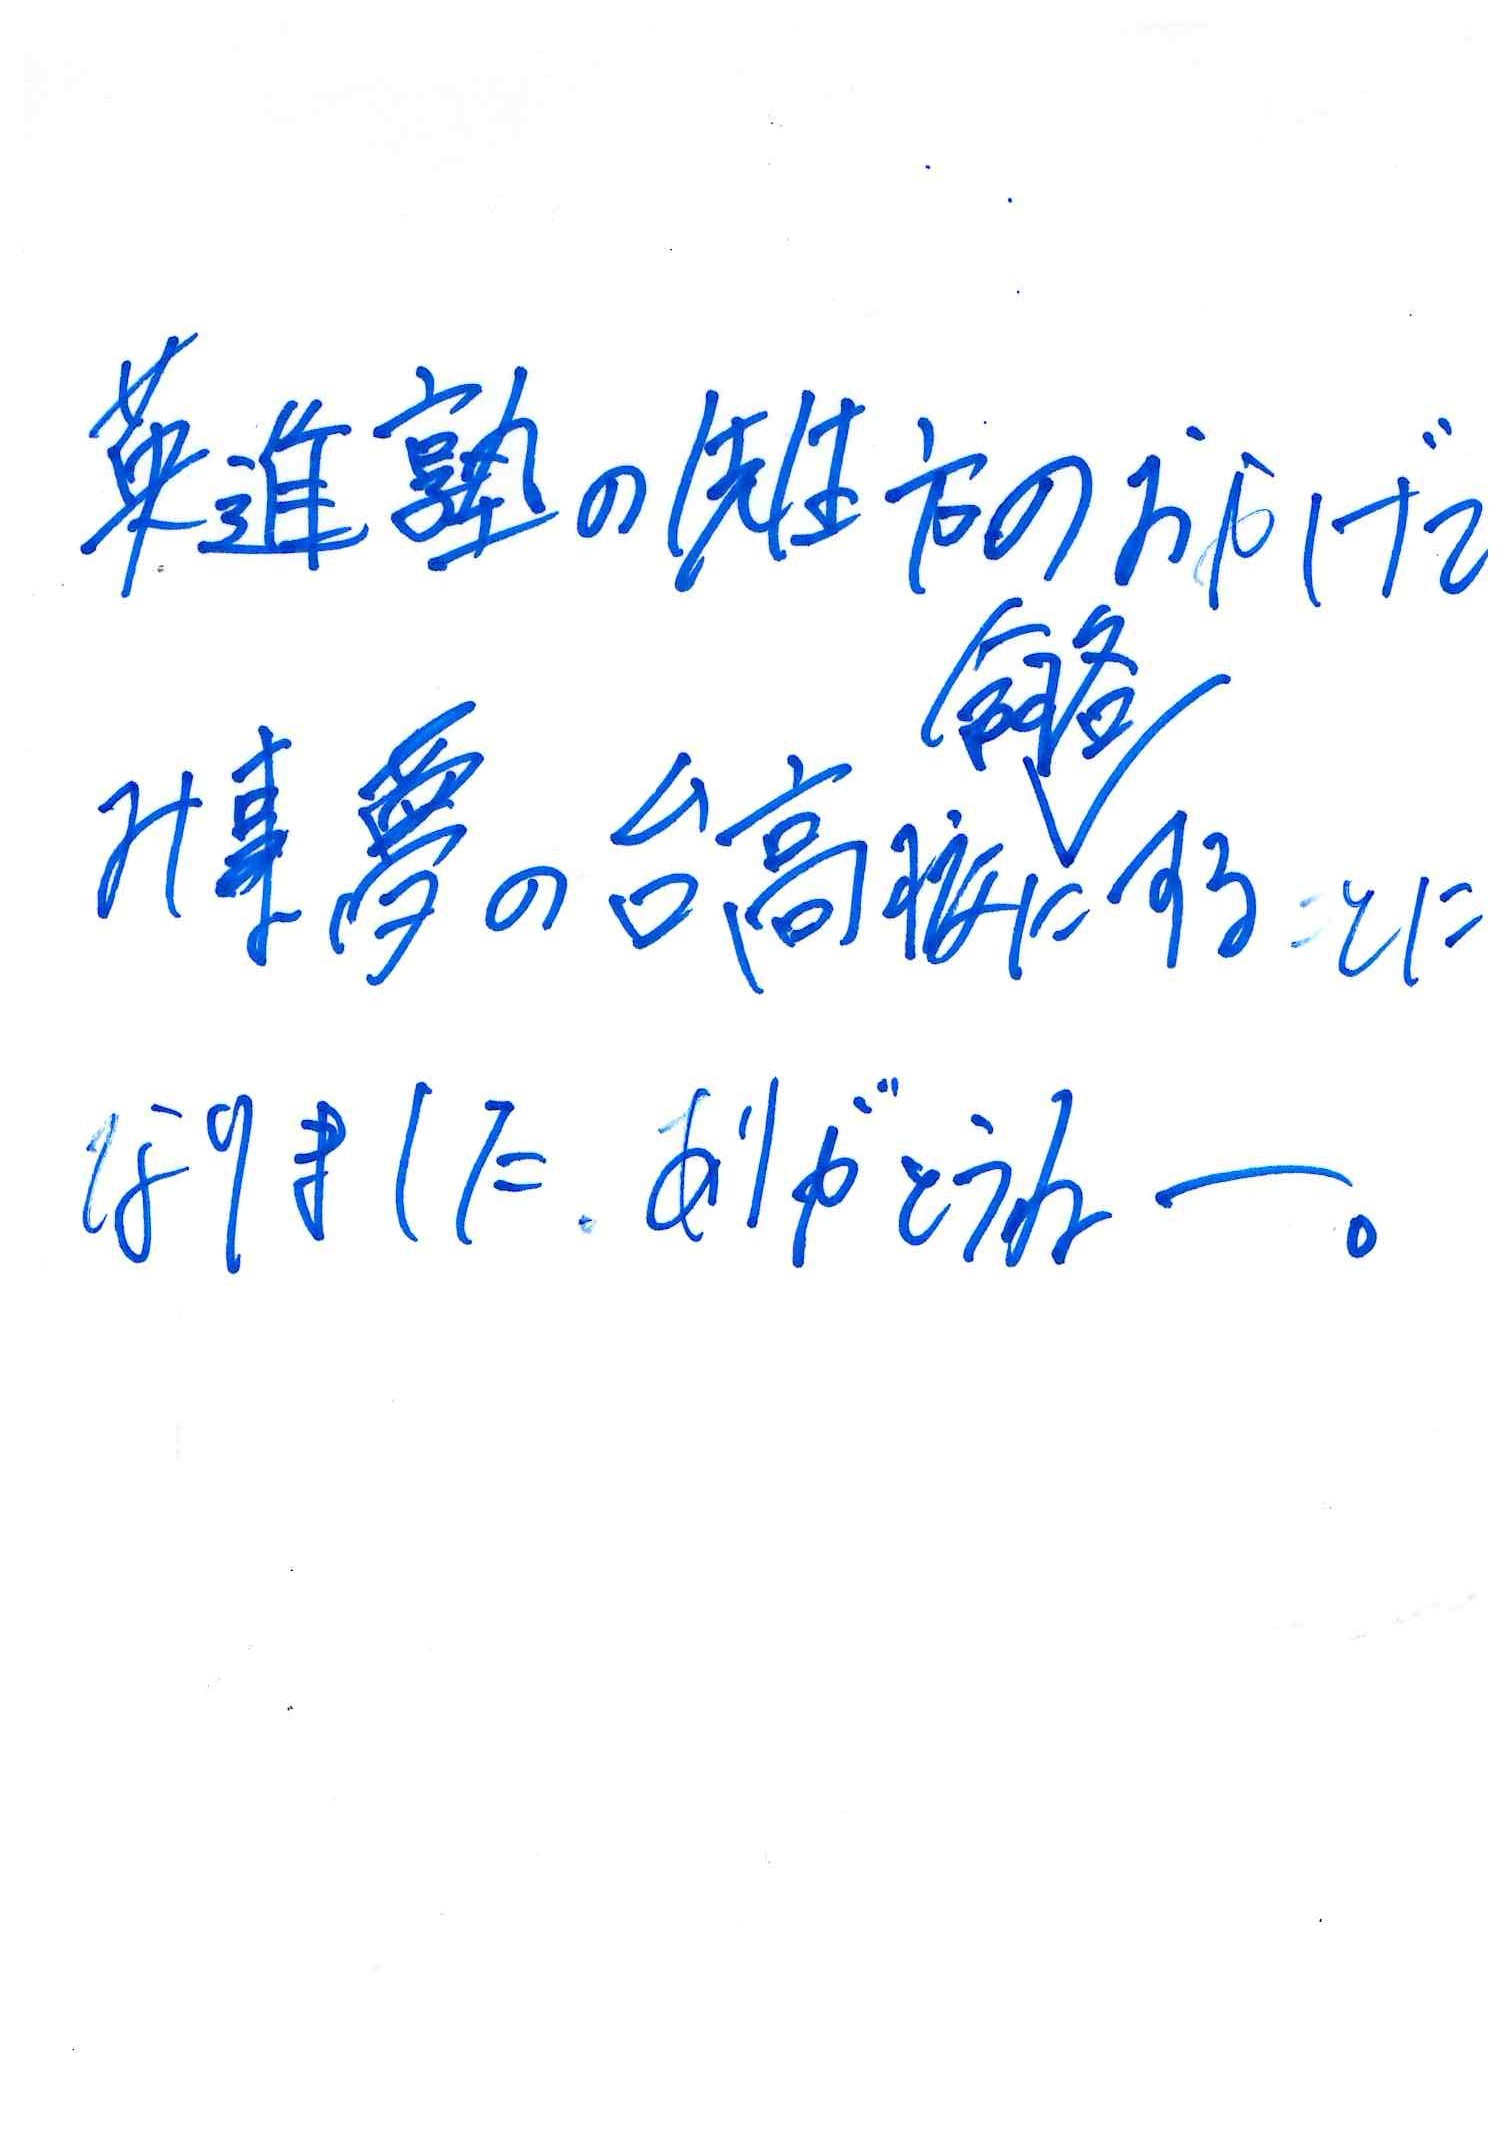 英進塾の先生方のおかげで
み事夢の台高校に合格することに
なりました.ありがとうねー。